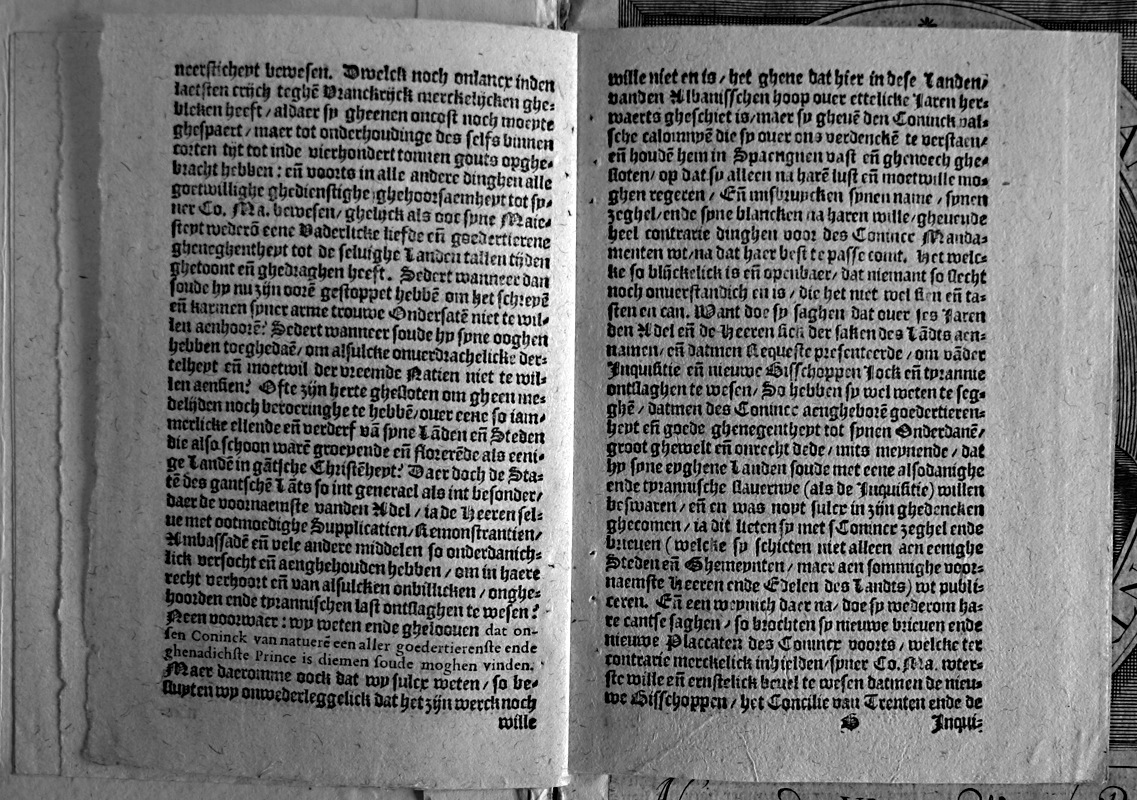 neersticheyt bewesen. Dwelck noch onlancx inden
laetsten crijch teghē Vranckrijck merckelijcken ghe-
bleken heeft / aldaer sy gheenen oncost noch moeyte
ghespaert / maer tot onderhoudinge des selfs binnen
corten tijt tot inde vierhondert tonnen gouts opghe-
bracht hebben : eñ voorts in alle andere dinghen alle
goetwillighe ghedienstighe ghehoorsaemheyt tot sy-
ner Co. Ma. bewesen / ghelijck als ooc syne Maie-
steyt wederō eene Vaderlicke liefde eñ goedertierene
gheneghentheyt tot de seluighe Landen tallen tijden
ghetoont eñ ghedraghen heeft. Sedert wanneer dan
soude hy nu zijn oorē gestoppet hebbē om het schreyē
eñ karmen syner arme trouwe Ondersatē niet te wil-
len aenhoorē? Sedert wanneer soude hy syne ooghen
hebben toeghedaē / om alsulcke onuerdrachelicke der-
telheyt eñ moetwil der vreemde Natien niet te wil-
len aensien? Ofte zijn herte ghesloten om gheen me-
delijden noch beroeringhe te hebbē / ouer eene so iam-
merlicke ellende eñ verderf vā syne Lāden eñ Steden
die also schoon warē groeyende eñ florerēde als eeni-
ge Landē in gātsche Christēheyt? Daer doch de Sta-
tē des gantschē Lāts so int generael als int besonder /
daer de voornaemste vanden Adel / ia de Heeren sel-
ue met ootmoedighe Supplicatien / Remonstrantien /
Ambassadē eñ vele andere middelen so onderdanich-
lick versocht eñ aenghehouden hebben / om in haere
recht verhoort eñ van alsulcken onbillicken / onghe-
hoorden ende tyrannischen last ontslaghen te wesen?
Neen voorwaer : wy weten ende gheloouen dat on-
sen Coninck van natuerē een aller goedertierenste ende
ghenadichste Prince is diemen soude moghen vinden.
Maer daeromme oock dat wy sulcx weten / so be-
sluyten wy onwederleggelick dat het zijn werck noch
wille
wille niet en is / het ghene dat hier in dese Landen /
vanden Albanisschen hoop ouer ettelicke Jaren her-
waerts gheschiet is / maer sy gheuē den Coninck val-
sche calomnyē die sy ouer ons verdenckē te verstaen /
eñ houdē hem in Spaengnen vast eñ gheneech ghe-
sloten / op dat sy alleen na harē lust eñ moetwille mo-
ghen regeren / Eñ misbruycken synen name / synen
zeghel / ende syne blancken na haren wille / gheuende
heel contrarie dinghen voor des Conincx Manda-
menten wt / na dat haer best te passe comt. Het welc-
ke so blijckelick is eñ openbaer / dat niemant so slecht
noch onuerstandich en is / die het niet wel sien eñ ta-
sten en can. Want doe sy saghen dat ouer ses Jaren
den Adel eñ de Heeren sick der saken des Lādts aen-
namen / eñ datmen Requeste presenteerde / om vāder
Inquisitie eñ nieuwe Bisschoppen Jock eñ tyrannie
ontslaghen te wesen / So hebben sy wel weten te seg-
ghē / datmen des Conincx aengheborē goedertieren-
heyt eñ goede ghenegentheyt tot synen Onderdanē /
groot ghewelt eñ onrecht dede / mits meynende / dat
hy syne eyghene Landen soude met eene alsodanighe
ende tyrannische slauernye (als de Inquisitie) willen
beswaren / eñ en was noyt sulcx in zijn ghedencken
ghecomen / ia dit lieten sy met sConincx zeghel ende
brieuen ( welcke sy schicten niet alleen aen eenighe
Steden eñ Ghemeynten / maer aen sommighe voor-
naemste Heeren ende Edelen des Landts) wt publi-
ceren. Eñ een weynich daer na / doe sy wederom ha-
re cantse saghen / so brochten sy nieuwe brieuen ende
nieuwe Placcaten des Conincx voorts / welcke ter
contrarie merckelick inhielden / syner Co. Ma. wter-
ste wille eñ ernstelick beuel te wesen datmen de nieu-
we Bisschoppen / het Concilie van Trenten ende de
Inqui-